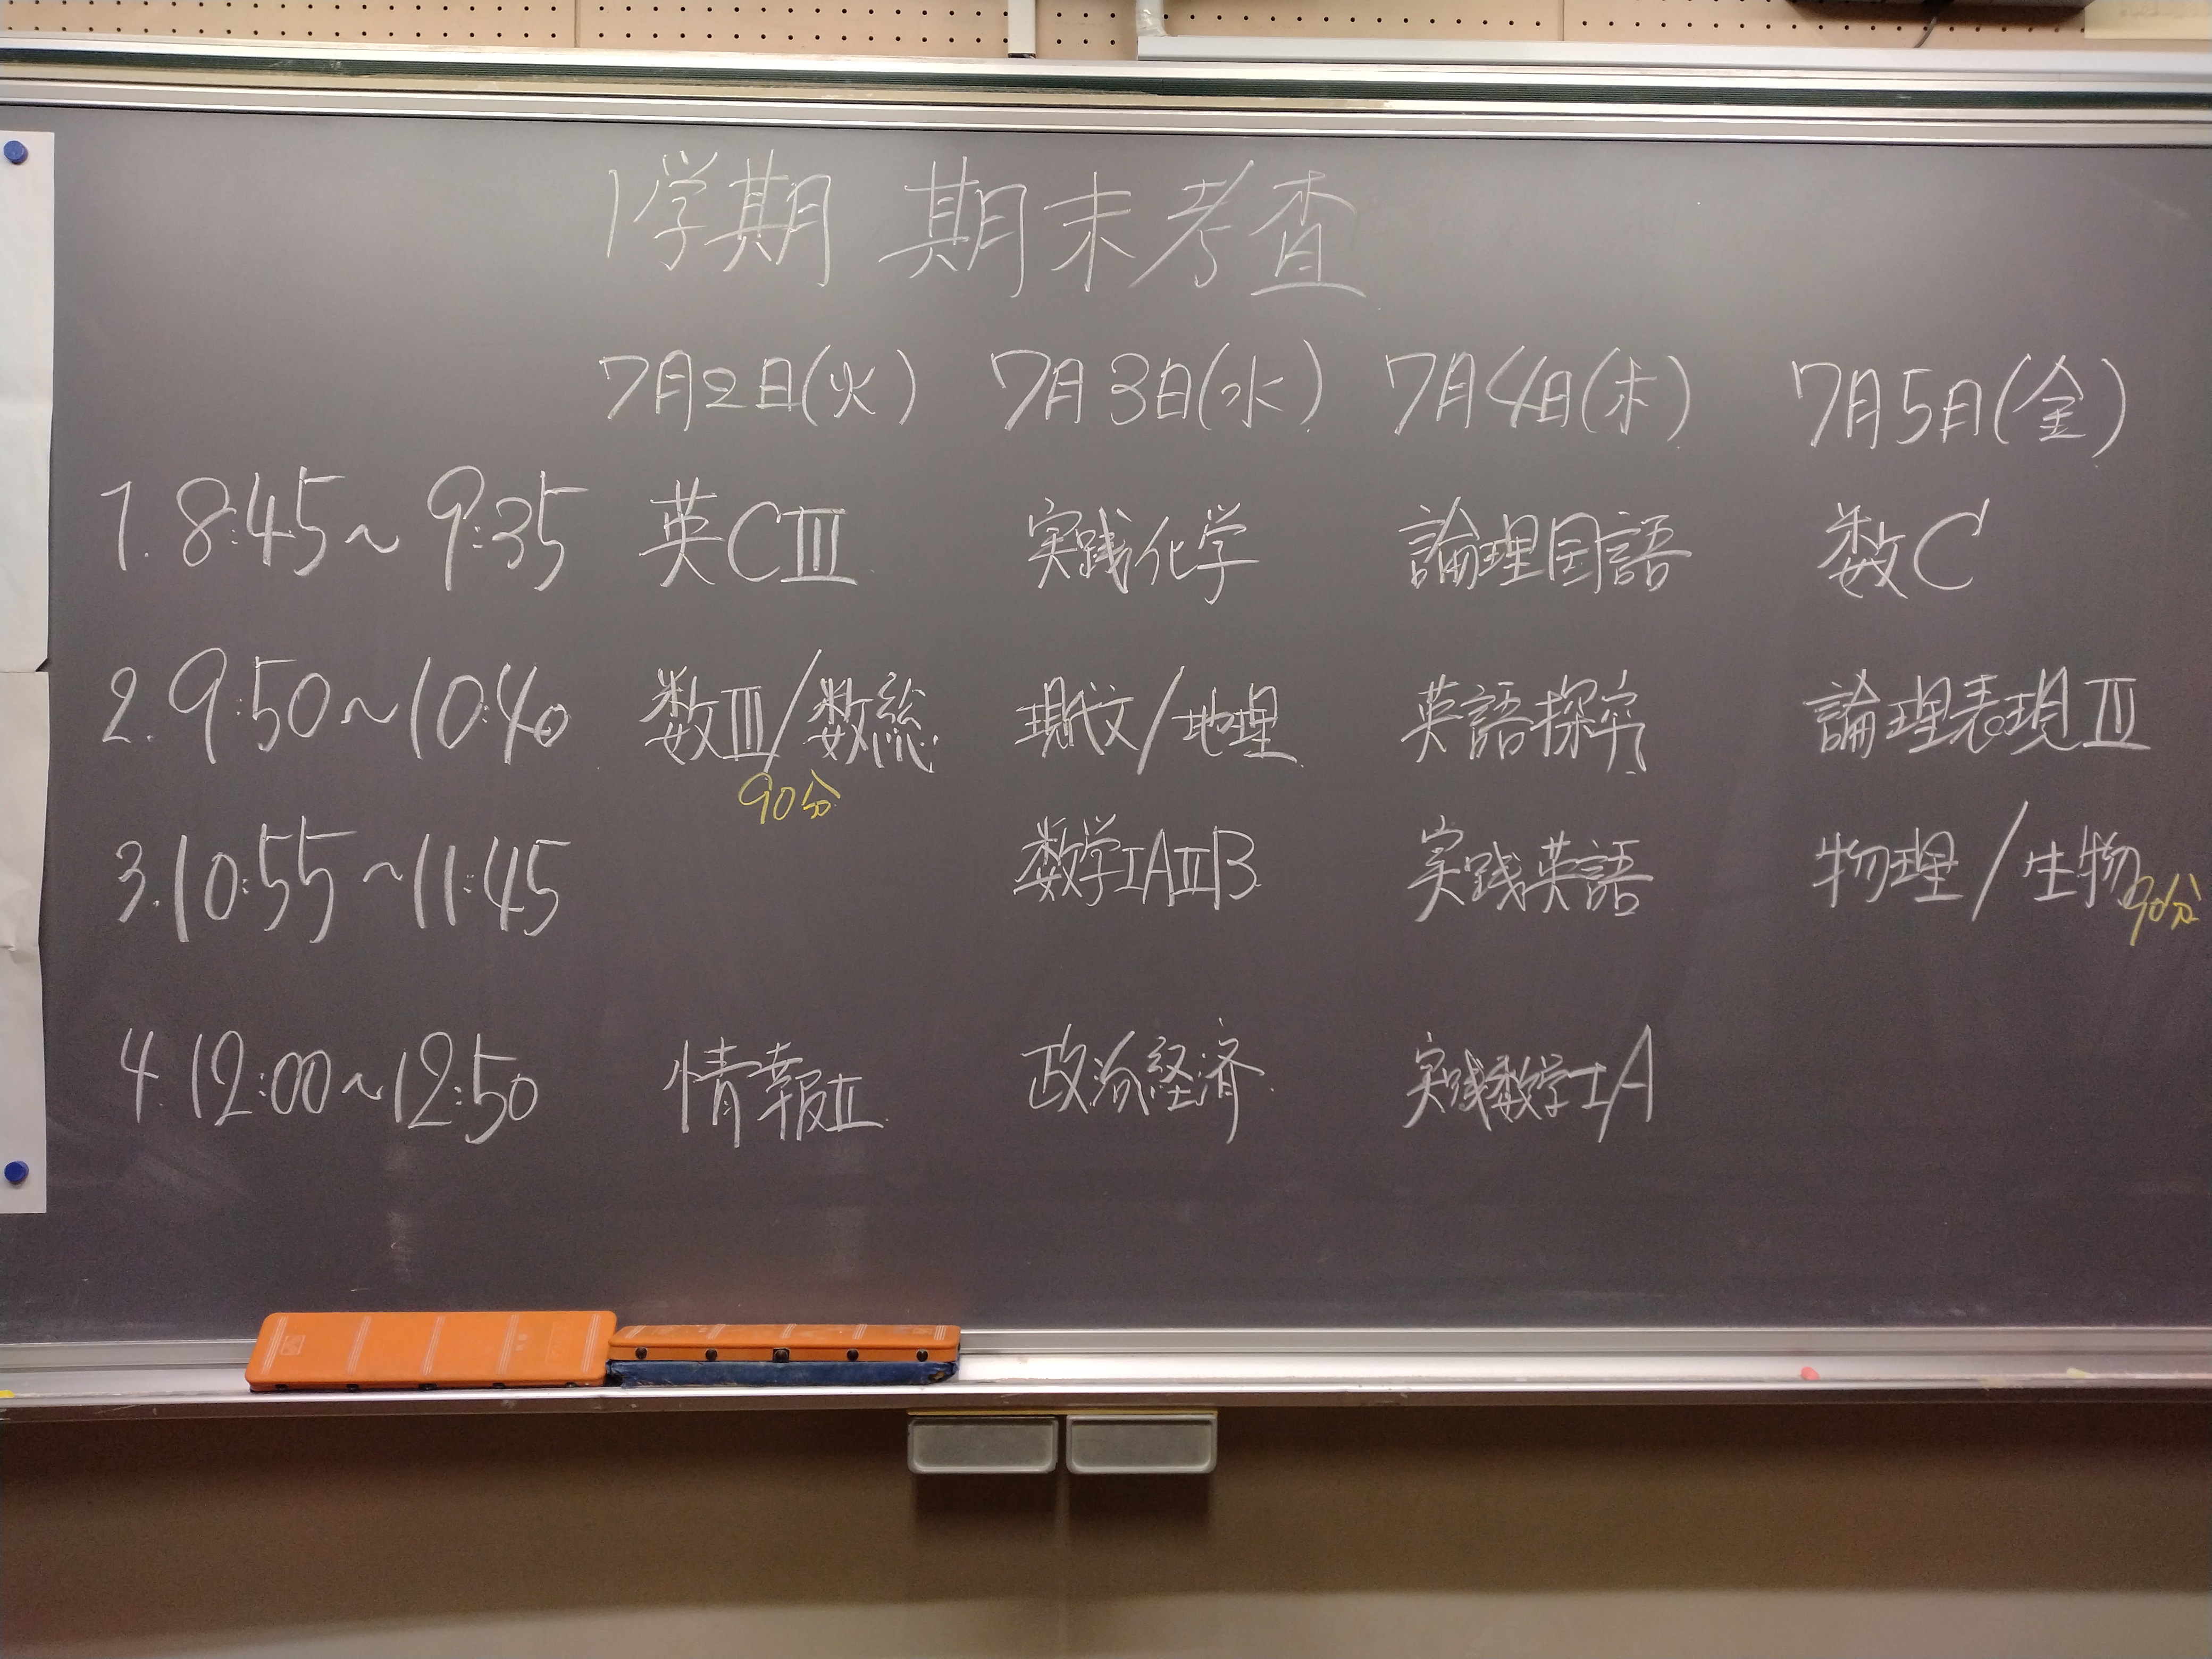 1学期 期末考査
7月2日(火) 7月3日(水) 7月4日(木) 7月5日(金)
1. 8:45~9:35 英CⅢ 実践化学 論理国語 数C
2. 9:50~10:40 数Ⅲ/数総 現代文/地理 英語探究 論理表現Ⅲ
90分
3. 10:55~11:45 数学ⅠAⅡB 実践英語 物理/生物 90分
4. 12:00~12:50 情報Ⅱ 政治経済 実践数学ⅠA